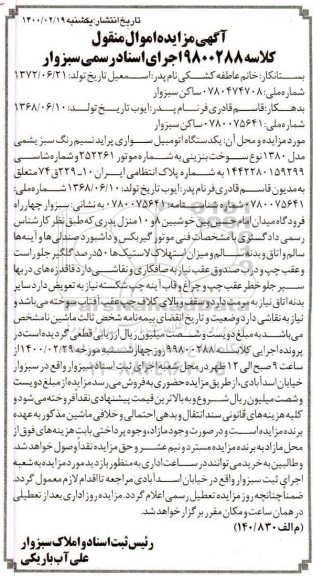 تاریخ انتشار: یکشنبه ۱۴۰۰/۰۲/۱۹
آگهی مزایده اموال منقول
کلاسه ۹۸۰۰۲۸۸ اجرای اسناد رسمی سبزوار
بستانکار: خانم عاطفه کشکی نام پدر: اسمعیل تاریخ تولد: ۱۳۷۲/۰۶/۲۱
شماره ملی: ۰۷۸۰۴۷۴۷۰۸ ساکن سبزوار
بدهکار: قاسم قادری فر نام پدر: ایوب تاریخ تولد: ۱۳۶۸/۰۶/۱۰
شماره ملی: ۰۷۸۰۰۷۵۶۴۱ ساکن سبزوار
مورد مزایده و محل آن: یکدستگاه اتومبیل سواری پراید نسیم رنگ سبز یشمی
مدل ۱۳۸۰ نوع سوخت بنزینی به شماره موتور ۲۵۲۲۶۱ و شماره شاسی
۱۴۴۲۲۸۰۱۵۹۲۹۹ به شماره پلاک انتظامی ایران ۱۰-۲۲۹ق۷۴ متعلق
به مدیون قاسم قادری فر نام پدر: ایوب تاریخ تولد: ۱۳۶۸/۰۶/۱۰ شماره ملی:
۰۷۸۰۰۷۵۶۴۱ شماره شناسنامه: ۰۷۸۰۰۷۵۶۴۱ به نشانی: سبزوار چهارراه
فرودگاه میدان امام حسین بین خوشبین ۸ و ۱۰ منزل پدری که طبق نظر کارشناس
رسمی دادگستری با مشخصات فنی موتور گیربکس و داشبورد صندلی ها و آینه ها
سالم و اتاق و بدنه سالم و میزان استهلاک لاستیک ها ۵۰ درصد گلگیر جلو راست
و عقب چپ و درب صندوق عقب نیاز به صافکاری و نقاشی دارد قاب دور درب ها
سپر جلو خطر عقب چپ و چراغ و قاب آینه چپ شکسته نیاز به تعویض دارد سایر
بدنه اتاق نیاز به مرمت دارد سقف و بالای کلاف جب عقب آفتاب سوخته می باشد و
نیاز به نقاشی دارد وضعیت و تاریخ انقضای بیمه نامه شخص ثالث ماشین نامشخص
می باشد به مبلغ دویست و شصت میلیون ریال ارزیابی قطعی گردیده است در
پرونده اجرایی کلاسه ۹۸۰۰۲۸۸ روز چهارشنبه مورخه ۱۴۰۰/۰۲/۲۹ از
ساعت ۹ صبح الی ۱۲ ظهر در محل شعبه اجرای ثبت اسناد سبزوار واقع در سبزوار
خیابان اسدآبادی، از طریق مزایده حضوری به فروش می رسد مزایده از مبلغ دویست
و شصت میلیون ریال شروع و به بالاترین قیمت پیشنهادی نقداً فروخته می شود و
کلیه هزینه های قانونی سند انتقال و بدهی احتمالی و خلافی ماشین مذکور به عهده
برنده مزایده است و در صورت وجود مازاد، وجوه پرداختی بابت هزینه های فوق از
محل مازاد به برنده مزایده مسترد و نیم عشر و حق مزایده نقداً وصول خواهد شد.
و طالبین به خرید می توانند در ساعت اداری به منظور بازدید مورد مزایده به شعبه
اجرای ثبت سبزوار واقع در خیابان اسدآبادی مراجعه تا اقدام لازم معمول گردد.
ضمناً چنانچه روز مزایده تعطیل رسمی اعلام گردد. مزایده روز اداری بعد از تعطیلی
در همان ساعت و مکان مقرر برگزار خواهد شد.
(م الف ۱۴۰/۸۳۰)
رئیس ثبت اسناد و املاک سبزوار
علی آب باریکی